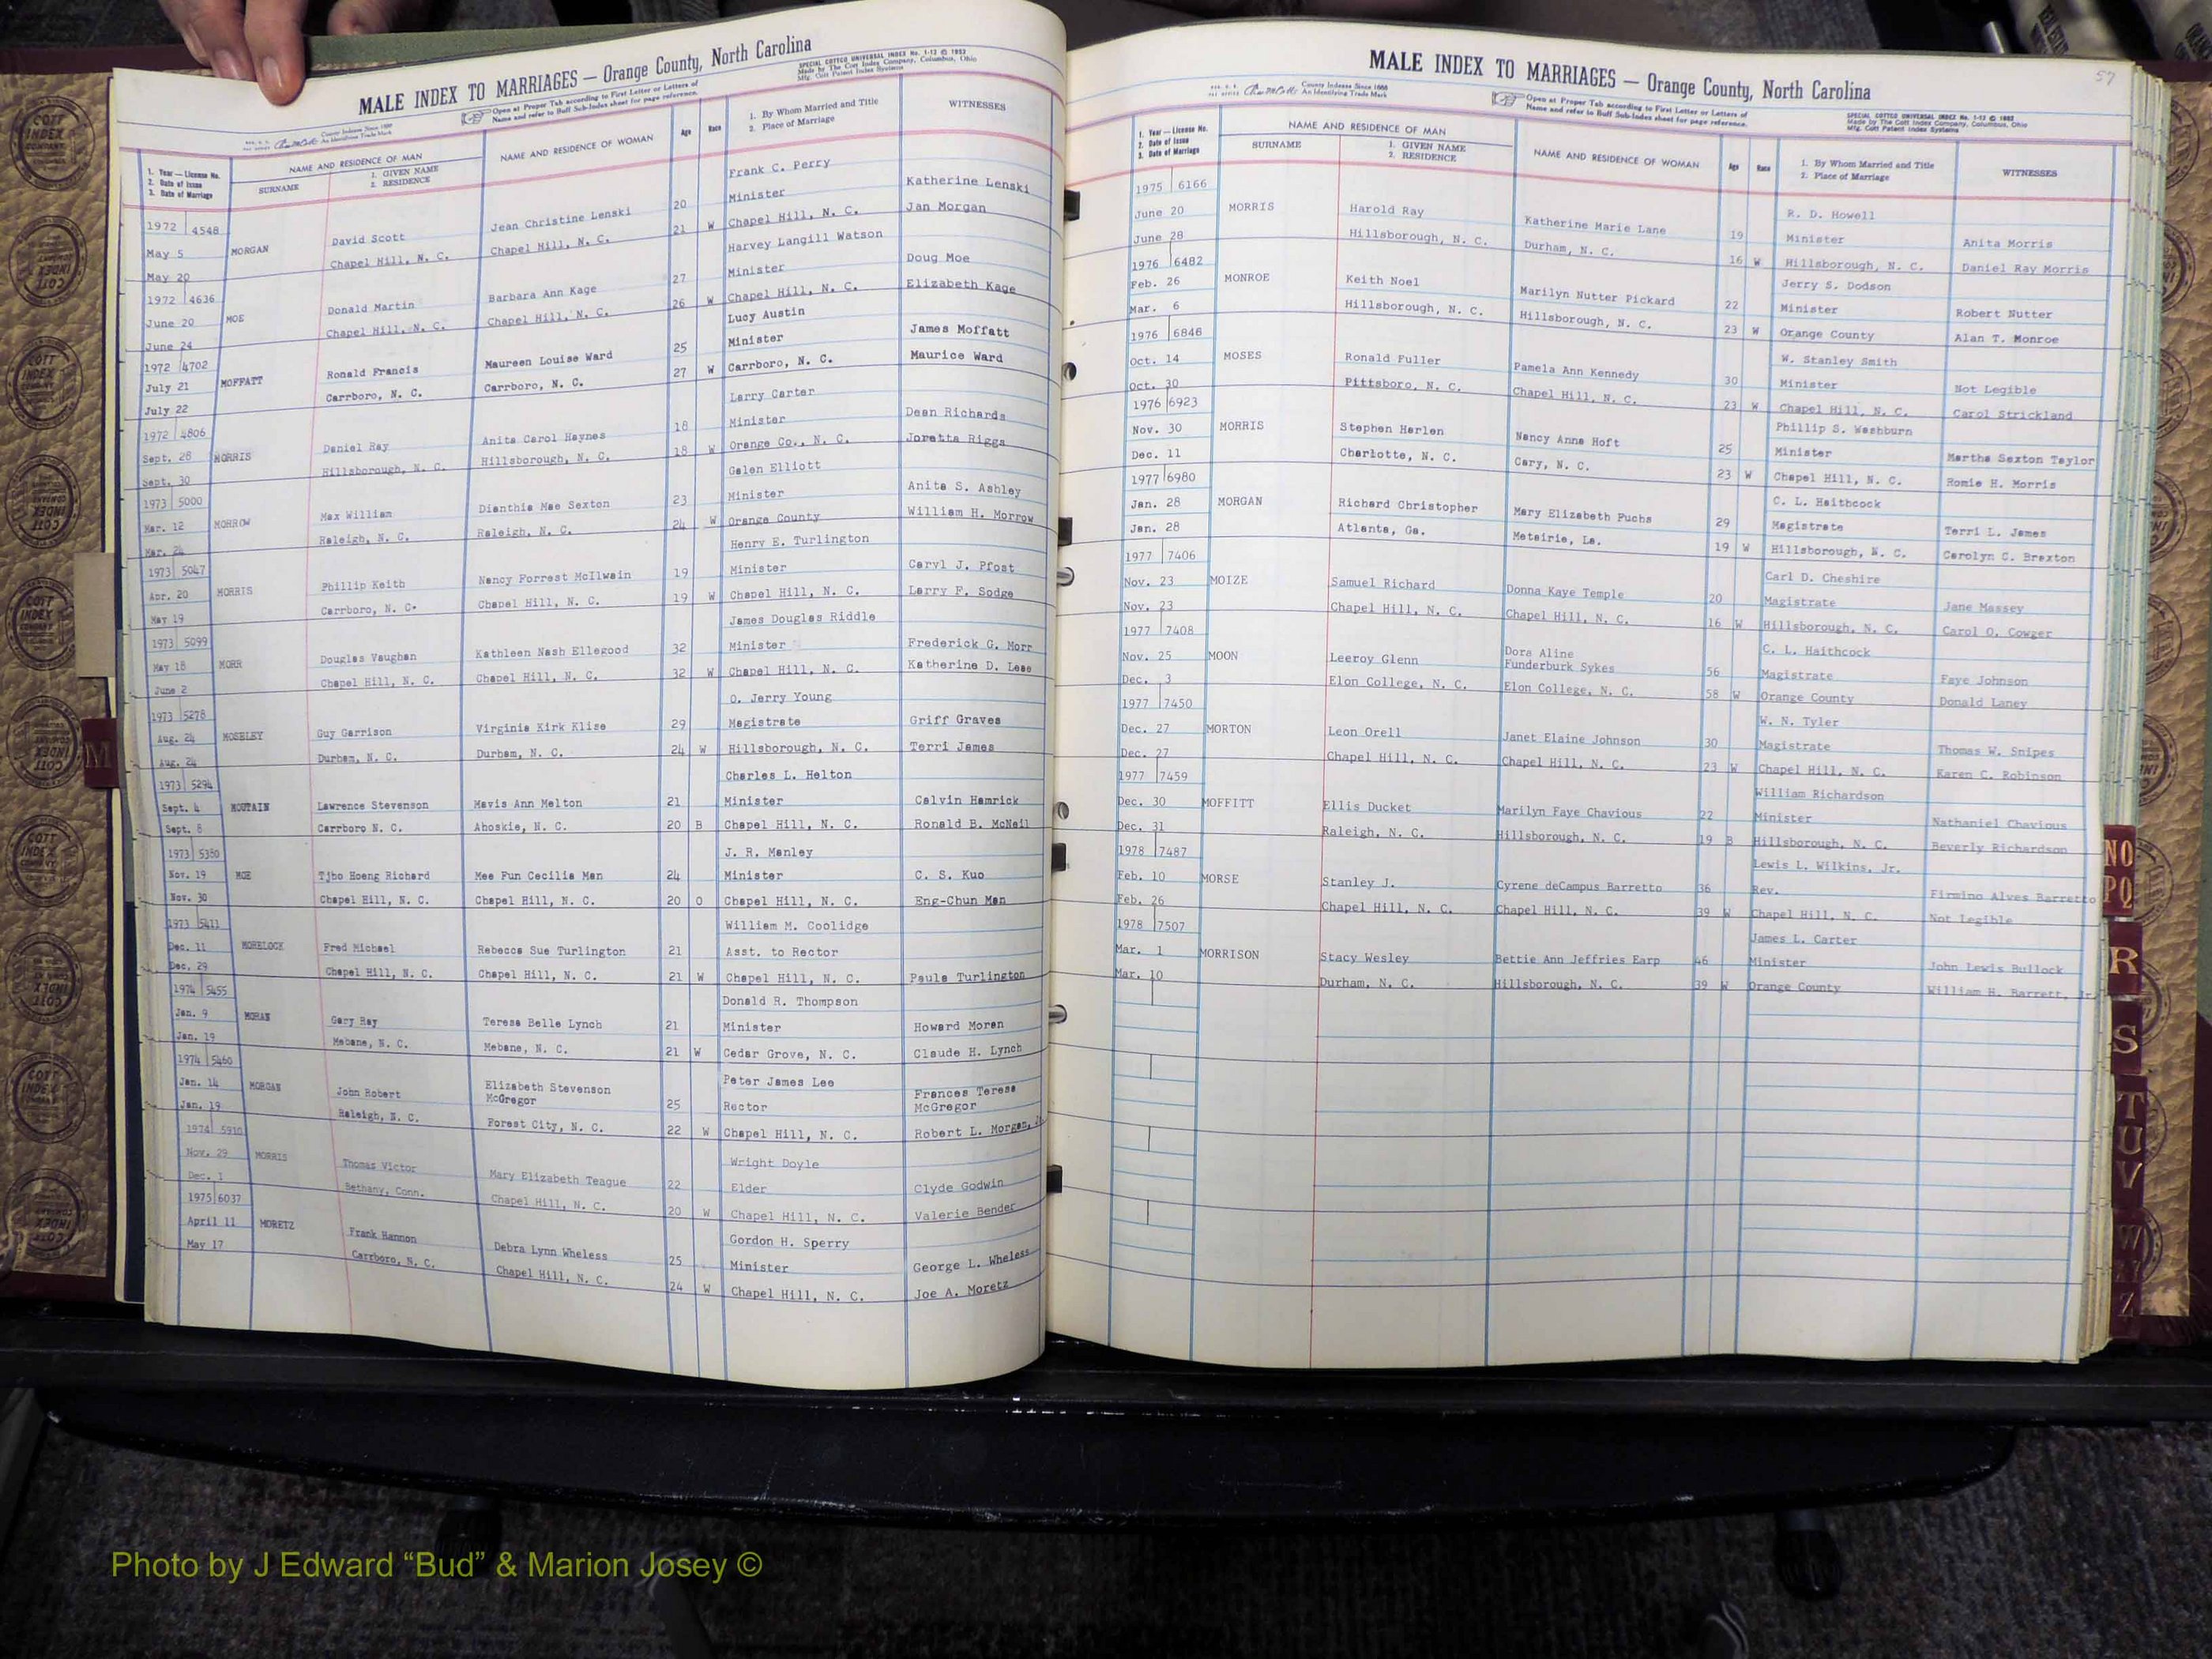 MALE INDEX TO MARRIAGES — Orange County, North Carolina
SPECIAL COTTCO UNIVERSAL INDEX No. 1-12 © 1953
Made by The Cott Index Company, Columbus, Ohio
Mfg. Cott Patent Index Systems
County Indexes Since 1888
An Identifying Trade Mark
Open at Proper Tab according to First Letter or Letters of
Name and refer to Buff Sub-Index sheet for page reference.
1. Year — License No.
2. Date of Issue
3. Date of Marriage
NAME AND RESIDENCE OF MAN
SURNAME
1. GIVEN NAME
2. RESIDENCE
NAME AND RESIDENCE OF WOMAN
Age
Race
1. By Whom Married and Title
2. Place of Marriage
WITNESSES
Frank C. Perry
1972 4548 Jean Christine Lenski 20 Minister Katherine Lenski
May 5 MORGAN David Scott Chapel Hill, N. C. 21 W Chapel Hill, N. C. Jan Morgan
May 20 Chapel Hill, N. C.
Harvey Langill Watson
1972 4636 Donald Martin Barbara Ann Kage 27 Minister Doug Moe
June 20 MOE Chapel Hill, N. C. Chapel Hill, N. C. 26 W Chapel Hill, N. C. Elizabeth Kage
June 24
Lucy Austin
1972 4702 Ronald Francis Maureen Louise Ward 25 Minister James Moffatt
July 21 MOFFATT Carrboro, N. C. Carrboro, N. C. 27 W Carrboro, N. C. Maurice Ward
July 22
Larry Carter
1972 4806 Daniel Ray Anita Carol Haynes 18 Minister Dean Richards
Sept. 28 MORRIS Hillsborough, N. C. Hillsborough, N. C. 18 W Orange Co., N. C. Joretta Riggs
Sept. 30
Galen Elliott
1973 5000 Max William Dianthia Mae Sexton 23 Minister Anita S. Ashley
Mar. 12 MORROW Raleigh, N. C. Raleigh, N. C. 24 W Orange County William H. Morrow
Mar. 24
Henry E. Turlington
1973 5047 Phillip Keith Nancy Forrest McIlwain 19 Minister Caryl J. Pfost
Apr. 20 MORRIS Carrboro, N. C. Chapel Hill, N. C. 19 W Chapel Hill, N. C. Larry F. Sodge
May 19
James Douglas Riddle
1973 5099 Douglas Vaughan Kathleen Nash Ellegood 32 Minister Frederick G. Morr
May 18 MORR Chapel Hill, N. C. Chapel Hill, N. C. 32 W Chapel Hill, N. C. Katherine D. Lese
June 2
O. Jerry Young
1973 5278 Guy Garrison Virginia Kirk Klise 29 Magistrate Griff Graves
Aug. 24 MOSELEY Durham, N. C. Durham, N. C. 24 W Hillsborough, N. C. Terri James
Aug. 24
Charles L. Helton
1973 5294
Sept. 4 MOUTAIN Lawrence Stevenson Mavis Ann Melton 21 Minister Calvin Hamrick
Sept. 8 Carrboro N. C. Ahoskie, N. C. 20 B Chapel Hill, N. C. Ronald B. McNeil
1973 5350 J. R. Manley
Nov. 19 MOE Tjho Hoeng Richard Mee Fun Cecilia Man 24 Minister C. S. Kuo
Nov. 30 Chapel Hill, N. C. Chapel Hill, N. C. 20 O Chapel Hill, N. C. Eng-Chun Man
1973 5411 William M. Coolidge
Dec. 11 MORELOCK Fred Michael Rebecca Sue Turlington 21 Asst. to Rector
Dec. 29 Chapel Hill, N. C. Chapel Hill, N. C. 21 W Chapel Hill, N. C. Paula Turlington
1974 5455 Donald R. Thompson
Jan. 9 MORAN Gary Ray Teresa Belle Lynch 21 Minister Howard Moran
Jan. 19 Mebane, N. C. Mebane, N. C. 21 W Cedar Grove, N. C. Claude H. Lynch
1974 5460 Peter James Lee
Jan. 14 MORGAN John Robert Elizabeth Stevenson McGregor 25 Rector Frances Teresa McGregor
Jan. 19 Raleigh, N. C. Forest City, N. C. 22 W Chapel Hill, N. C. Robert L. Morgan, Jr.
1974 5910 Wright Doyle
Nov. 29 MORRIS Thomas Victor Mary Elizabeth Teague 22 Elder Clyde Godwin
Dec. 1 Bethany, Conn. Chapel Hill, N. C. 20 W Chapel Hill, N. C. Valerie Bender
1975 6037 Gordon H. Sperry
April 11 MORETZ Frank Hannon Debra Lynn Wheless 25 Minister George L. Wheless
May 17 Carrboro, N. C. Chapel Hill, N. C. 24 W Chapel Hill, N. C. Joe A. Moretz
57
MALE INDEX TO MARRIAGES — Orange County, North Carolina
County Indexes Since 1888
An Identifying Trade Mark
Open at Proper Tab according to First Letter or Letters of
Name and refer to Buff Sub-Index sheet for page reference.
SPECIAL COTTCO UNIVERSAL INDEX No. 1-12 © 1953
Made by The Cott Index Company, Columbus, Ohio
Mfg. Cott Patent Index Systems
1. Year — License No.
2. Date of Issue
3. Date of Marriage
NAME AND RESIDENCE OF MAN
SURNAME
1. GIVEN NAME
2. RESIDENCE
NAME AND RESIDENCE OF WOMAN
Age
Race
1. By Whom Married and Title
2. Place of Marriage
WITNESSES
1975 6166 R. D. Howell
June 20 MORRIS Harold Ray Katherine Marie Lane 19 Minister Anita Morris
June 28 Hillsborough, N. C. Durham, N. C. 16 W Hillsborough, N. C. Daniel Ray Morris
1976 6482 Jerry S. Dodson
Feb. 26 MONROE Keith Noel Marilyn Nutter Pickard 22 Minister Robert Nutter
Mar. 6 Hillsborough, N. C. Hillsborough, N. C. 23 W Orange County Alan T. Monroe
1976 6846 W. Stanley Smith
Oct. 14 MOSES Ronald Fuller Pamela Ann Kennedy 30 Minister Not Legible
Oct. 30 Pittsboro, N. C. Chapel Hill, N. C. 23 W Chapel Hill, N. C. Carol Strickland
1976 6923 Phillip S. Washburn
Nov. 30 MORRIS Stephen Harlen Nancy Anne Hoft 25 Minister Martha Sexton Taylor
Dec. 11 Charlotte, N. C. Cary, N. C. 23 W Chapel Hill, N. C. Romie H. Morris
1977 6980 C. L. Haithcock
Jan. 28 MORGAN Richard Christopher Mary Elizabeth Fuchs 29 Magistrate Terri L. James
Jan. 28 Atlanta, Ga. Metairie, La. 19 W Hillsborough, N. C. Carolyn C. Braxton
1977 7406 Carl D. Cheshire
Nov. 23 MOIZE Samuel Richard Donna Kaye Temple 20 Magistrate Jane Massey
Nov. 23 Chapel Hill, N. C. Chapel Hill, N. C. 16 W Hillsborough, N. C. Carol O. Cowger
1977 7408 C. L. Haithcock
Nov. 25 MOON Leeroy Glenn Dora Aline Funderburk Sykes 56 Magistrate Faye Johnson
Dec. 3 Elon College, N. C. Elon College, N. C. 58 W Orange County Donald Laney
1977 7450 W. N. Tyler
Dec. 27 MORTON Leon Orell Janet Elaine Johnson 30 Magistrate Thomas W. Snipes
Dec. 27 Chapel Hill, N. C. Chapel Hill, N. C. 23 W Chapel Hill, N. C. Karen C. Robinson
1977 7459 William Richardson
Dec. 30 MOFFITT Ellis Ducket Marilyn Faye Chavious 22 Minister Nathaniel Chavious
Dec. 31 Raleigh, N. C. Hillsborough, N. C. 19 B Hillsborough, N. C. Beverly Richardson
1978 7487 Lewis L. Wilkins, Jr.
Feb. 10 MORSE Stanley J. Cyrene deCampus Barretto 36 Rev. Firmino Alves Barretto
Feb. 26 Chapel Hill, N. C. Chapel Hill, N. C. 39 W Chapel Hill, N. C. Not Legible
1978 7507 James L. Carter
Mar. 1 MORRISON Stacy Wesley Bettie Ann Jeffries Earp 46 Minister John Lewis Bullock
Mar. 10 Durham, N. C. Hillsborough, N. C. 39 W Orange County William H. Barrett, Jr.
M
NO
PQ
R
S
T
UV
W
Z
COTT INDEX COMPANY
Photo by J Edward “Bud” & Marion Josey ©